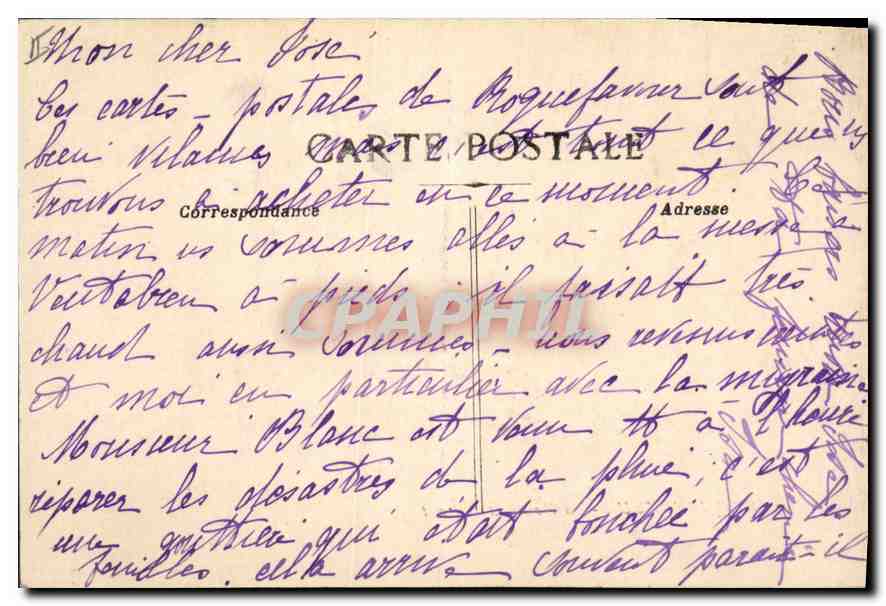 Mon cher José
Ces cartes-postales de Roquefavour sont
bien vilaines mais c'est tout ce que ns
CARTE POSTALE
trouvons à acheter en ce moment. Ce
Correspondance
Adresse
matin ns sommes allés à la messe
Ventabren à pieds, il faisait très
chaud aussi sommes-nous revenus
et moi en particulier avec la migraine
Monsieur Blanc est venu à l'heure
réparer les désastres de la pluie, c'est
une gouttière qui était bouchée par les
feuilles. cela arrive souvent paraît-il
CPAPHIL
Bons baisers